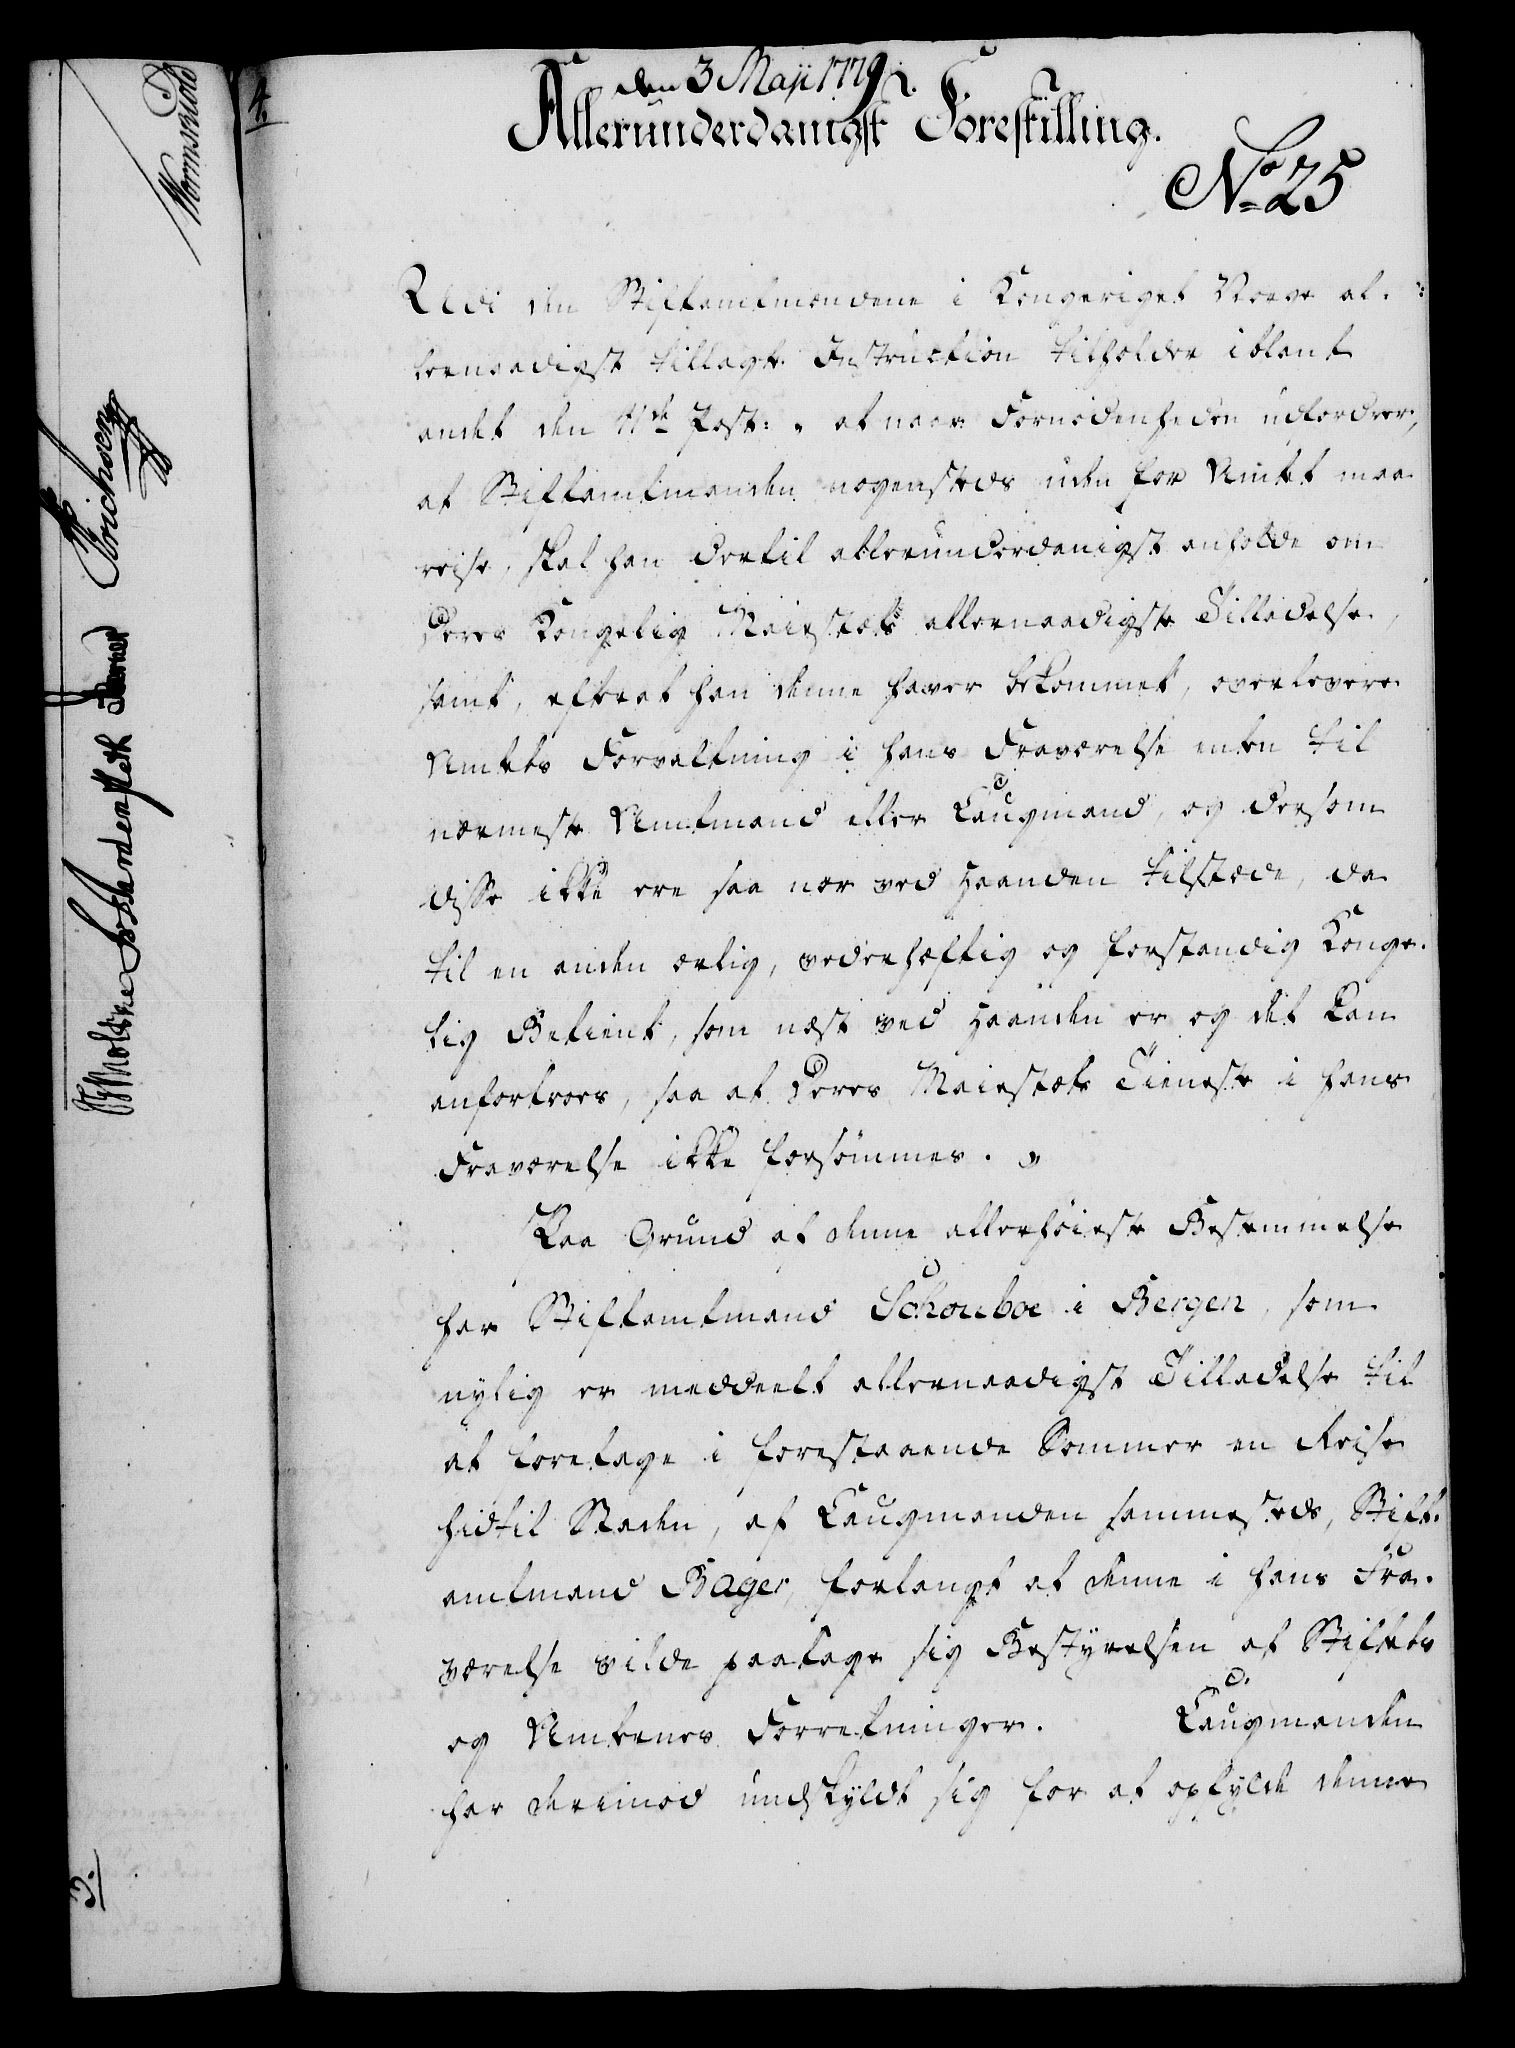 4.
den 3 Maji 1779.
Allerunderdanigst Forestilling.
No 25
Udi den Stiftamtmændene i Kongeriget Norge al-
lernaadigst tillagte Instruction tilholder iblant
andet den 11te Post: „ at naar Fornødenheden udfordrer,
at Stiftamtmanden nogensteds uden for Amtet maa
reise, skal han dertil allerunderdanigst anholde om
Deres Kongelig Maiestæts allernaadigste Tilladelse,
samt, efterat han denne haver bekommet, overlevere
Amtets Forvaltning i hans Fraværelse enten til
nærmeste Amtmand eller Laugmand, og dersom
disse ikke ere saa nær ved Haanden tilstæde, da
til en anden ærlig, vederhæftig og forstandig Konge-
lig Betient, som næst ved Haanden er og det kan
anfortroes, saa at Deres Maiestæts Tieneste i hans
Fraværelse ikke forsømmes. „
Paa Grund af denne allerhøieste Bestemmelse
har Stiftamtmand Schouboe i Bergen, som
nylig er meddeelt allernaadigst Tilladelse til
at foretage i forestaaende Sommer en Reise
hidtil Staden, af Laugmanden sammesteds, Stift-
amtmand Bager, forlangt at denne i hans Fra-
værelse vilde paatage sig Bestyrelsen af Stiftets
og Amtenes Forretninger. Laugmanden
har derimod undskyldt sig for at opfylde denne
Wormskiold
Erichsen